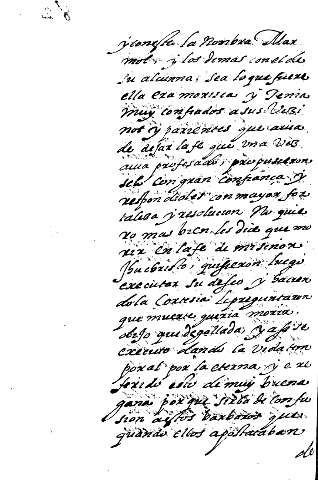 y con este la nombra Mar
mol, y los demas con el de
su alcurna, sea lo que fuere
ella era morisca y tenia
muy confiados a sus vezi
nos y parientes que avia
de dejar la fe que una vez
avia profesado, propusieron
selo con gran confiança y
respondioles con mayor for
taleça y resolucion yo quie
ro mas bien les dice que mo
rir en la fe de mi señor
Jhuchristo, quisieron luego
executar su deseo y hacien
do la cortesia le preguntaron
que muerte queria morir
dijo que degollada, y assi se
executo dando la vida tem
poral por la eterna y e re
ferido esto de muy buena
gana por que sirba de confu
sion a estos barbaros que
quando ellos apostataban
de